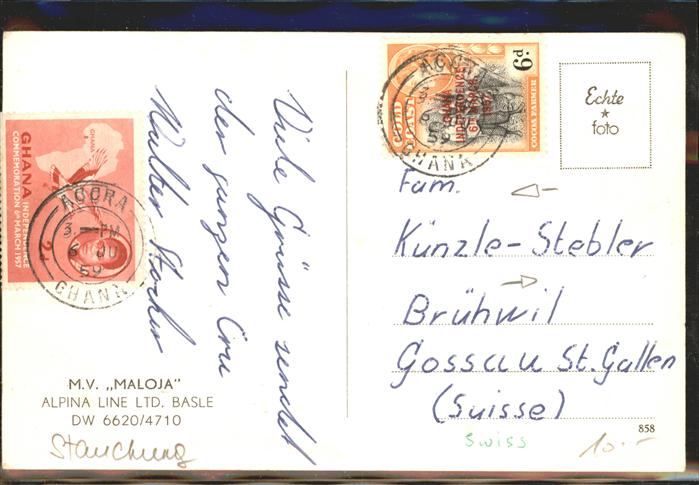 Viele Grüsse sendet
der ganzen Cru
Walter Stocker
M.V. „MALOJA"
ALPINA LINE LTD. BASLE
DW 6620/4710
Stauchung
GHANA
GHANA INDEPENDENCE
COMMEMORATION 6TH MARCH 1957
2d
ACCRA
3 - PM
6 JU
59
GHANA
GOLD COAST
6d.
GHANA
INDEPENDENCE
6TH MARCH
1957
COCOA FARMER
ACCRA
59
GHANA
Echte
foto
Fam.
Künzle-Stebler
Brühwil
Gossau St. Gallen
(Suisse)
Swiss
858
10.-